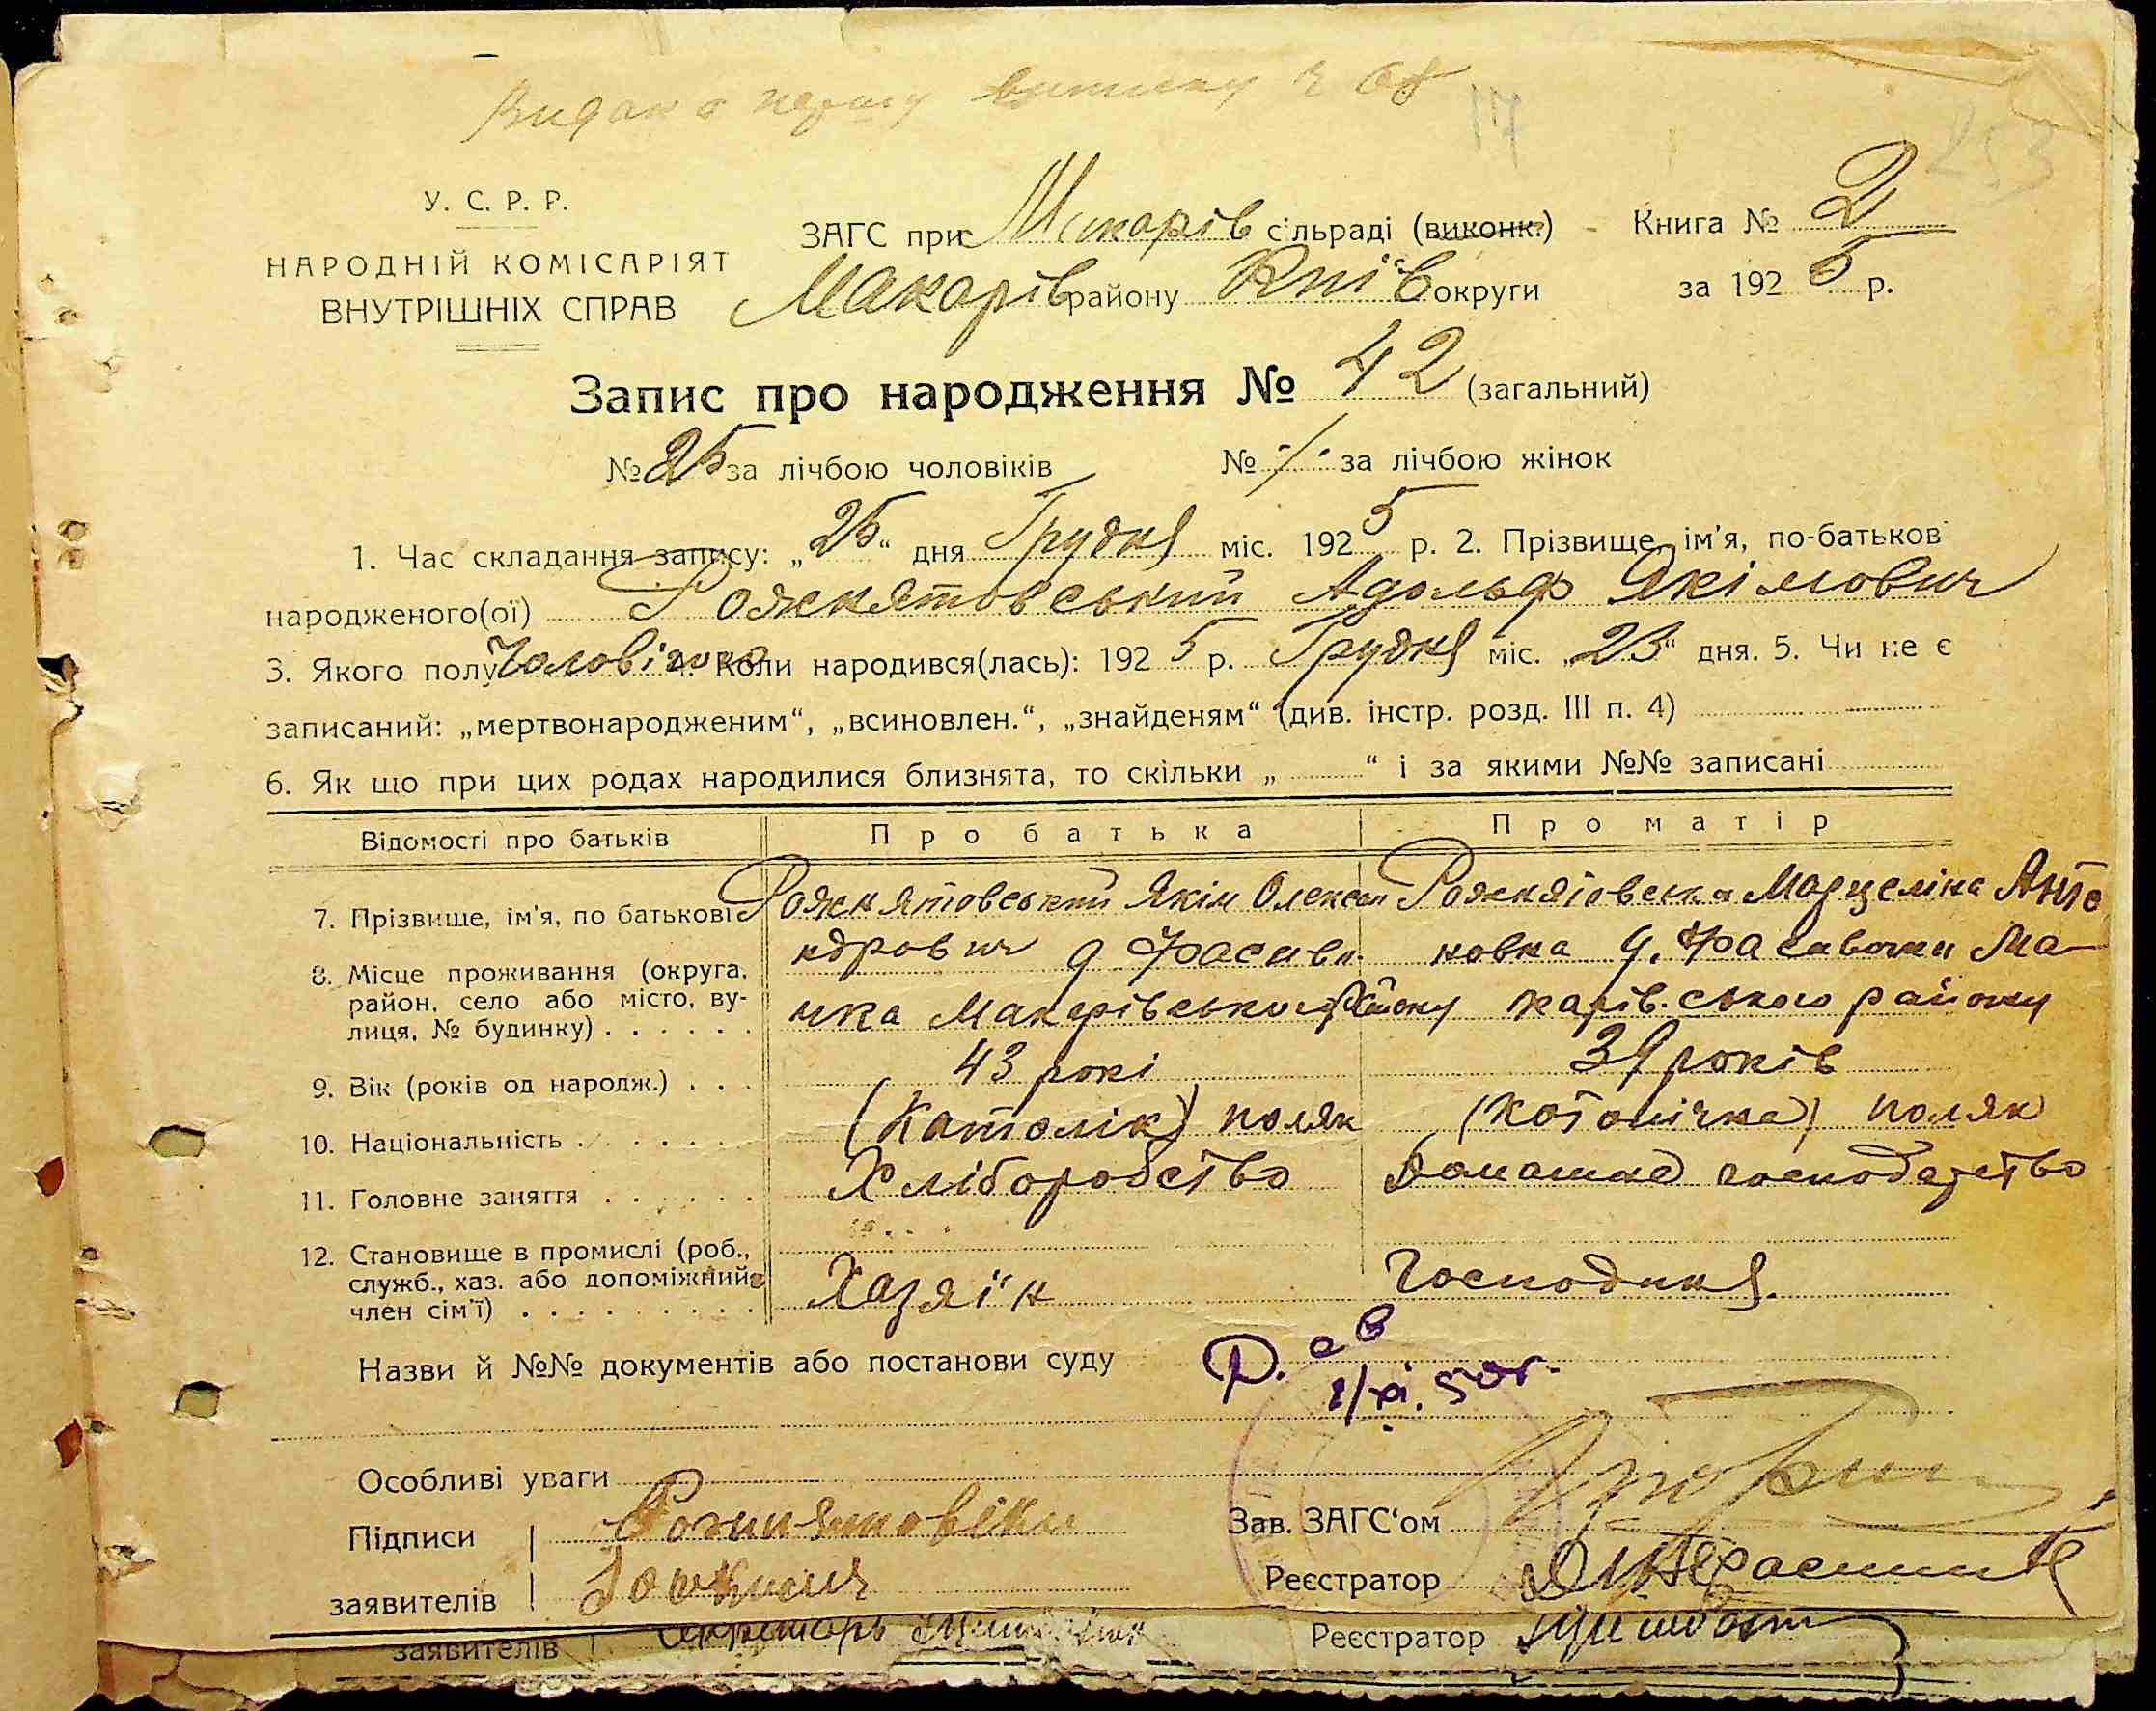 Видано
17
253
У. С. Р. Р.
НАРОДНІЙ КОМІСАРІЯТ
ВНУТРІШНІХ СПРАВ
ЗАГС при Макарів сільраді (виконк.)
Макарів району Київ округи
Книга № 2
за 1925 р.
Запис про народження № 42 (загальний)
№ 25 за лічбою чоловіків № -/- за лічбою жінок
1. Час складання запису: „25“ дня Грудня міс. 1925 р. 2. Прізвище, ім'я, по-батьков
народженого(ої) Рожнятовський Адольф Якімович
3. Якого полу Чоловічого 4. Коли народився(лась): 1925 р. Грудня міс. „23“ дня. 5. Чи не є
записаний: „мертвонародженим“, „всиновлен.“, „знайденям“ (див. інстр. розд. III п. 4)
6. Як що при цих родах народилися близнята, то скільки „ “ і за якими №№ записані
Відомості про батьків Про батька Про матір
7. Прізвище, ім'я, по батькові Рожнятовський Якім Олекса Рожнятовська Марцеліна Анто
ндрович д Фасів новна д. Фасівочки Ма-
8. Місце проживання (округа, район, село або місто, вулиця, № будинку)
чка Макарівського Району карівського району
9. Вік (років од народж.) 43 рокі 39 років
10. Національність (Католік) поляк (Католічка) поляк
11. Головне заняття Хліборобство Домашнє господарство
12. Становище в промислі (роб.,
служб., хаз. або допоміжний
член сім'ї) Хазяїн Господиня.
Назви й №№ документів або постанови суду
50г.
Особливі уваги
Підписи
заявителів
Зав. ЗАГС'ом
Реєстратор
заявителів Секретарь
Реєстратор